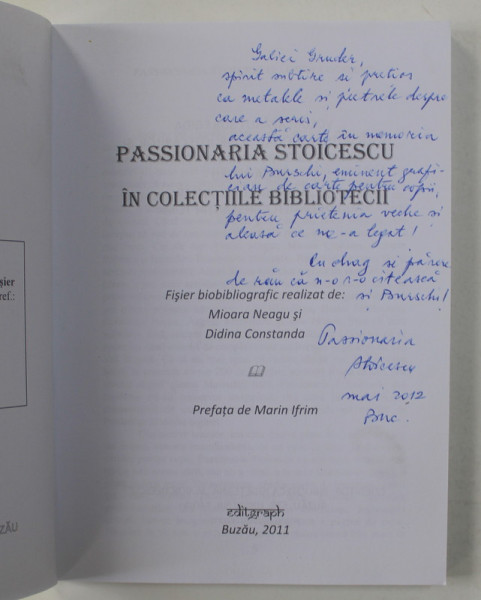 Galiei Gruder,
spirit subtire si pretios
ca metalele si pietrele despre
care a scris,
această carte în memoria
PASSIONARIA STOICESCU
lui Burschi, eminent grafi-
cian de carte pentru copii,
ÎN COLECȚIILE BIBLIOTECII
pentru prietenia veche si
aleasă ce ne-a legat!
Cu drag si părere
de rău că n-o r-o citească
si Burschi!
șier
ref.:
Fișier biobibliografic realizat de:
Mioara Neagu și
Didina Constanda
Passionaria
Stoicescu
mai 2012
Buc.
Prefața de Marin Ifrim
editgraph
Buzău, 2011
ZĂU